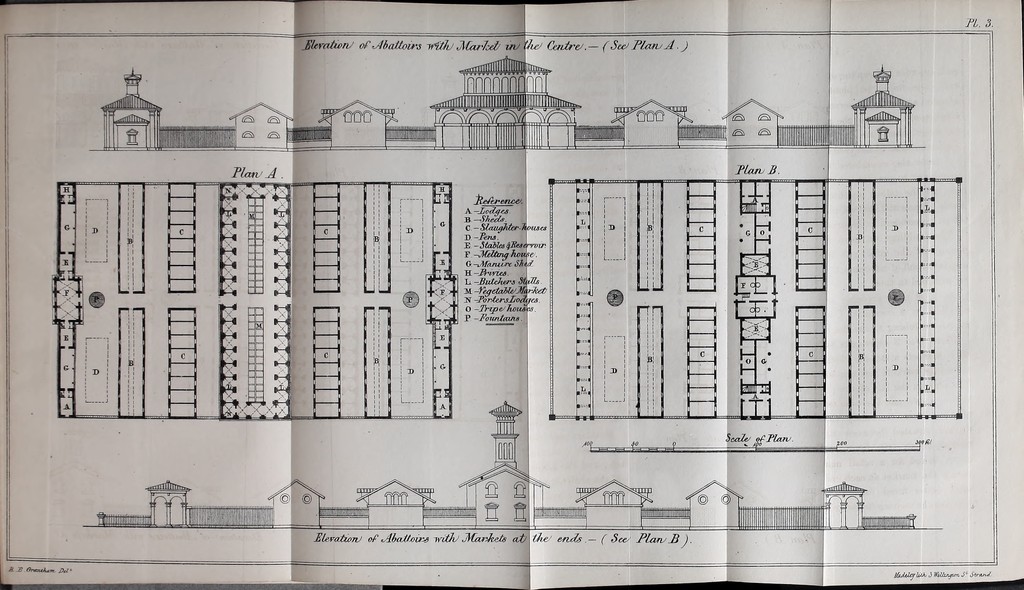 Pl. 3.
Elevation of Abattoirs with Market in the Centre. — (See Plan A.)
Plan A.
Plan B.
Reference.
A — Lodges
B — Sheds.
C — Slaughter-houses
D — Pens.
E — Stables & Reservoir
F — Melting house.
G — Manure Shed
H — Privies.
L — Butchers Stalls
M — Vegetable Market
N — Porters Lodges.
O — Tripe houses.
P — Fountains.
Scale of Plan.
100 50 0 100 200 300 ft
Elevation of Abattoirs with Markets at the ends. — (See Plan B).
R. B. Grantham Delt.
Madeley lith. 3 Wellington St. Strand.